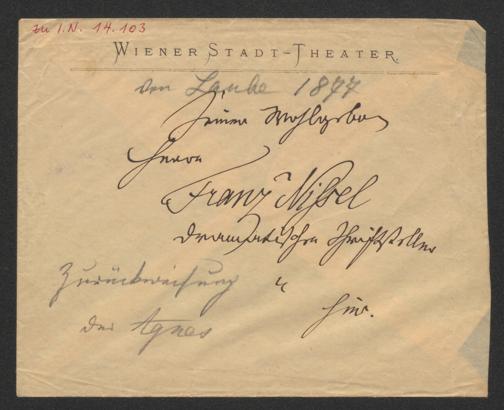 zu I.N. 14.103
WIENER STADT-THEATER.
von Laube 1877
Seiner Wohlgeborn
Herrn
Franz Nissel
dramatischen Schriftsteller
hier.
Zurückweisung
der Agnes